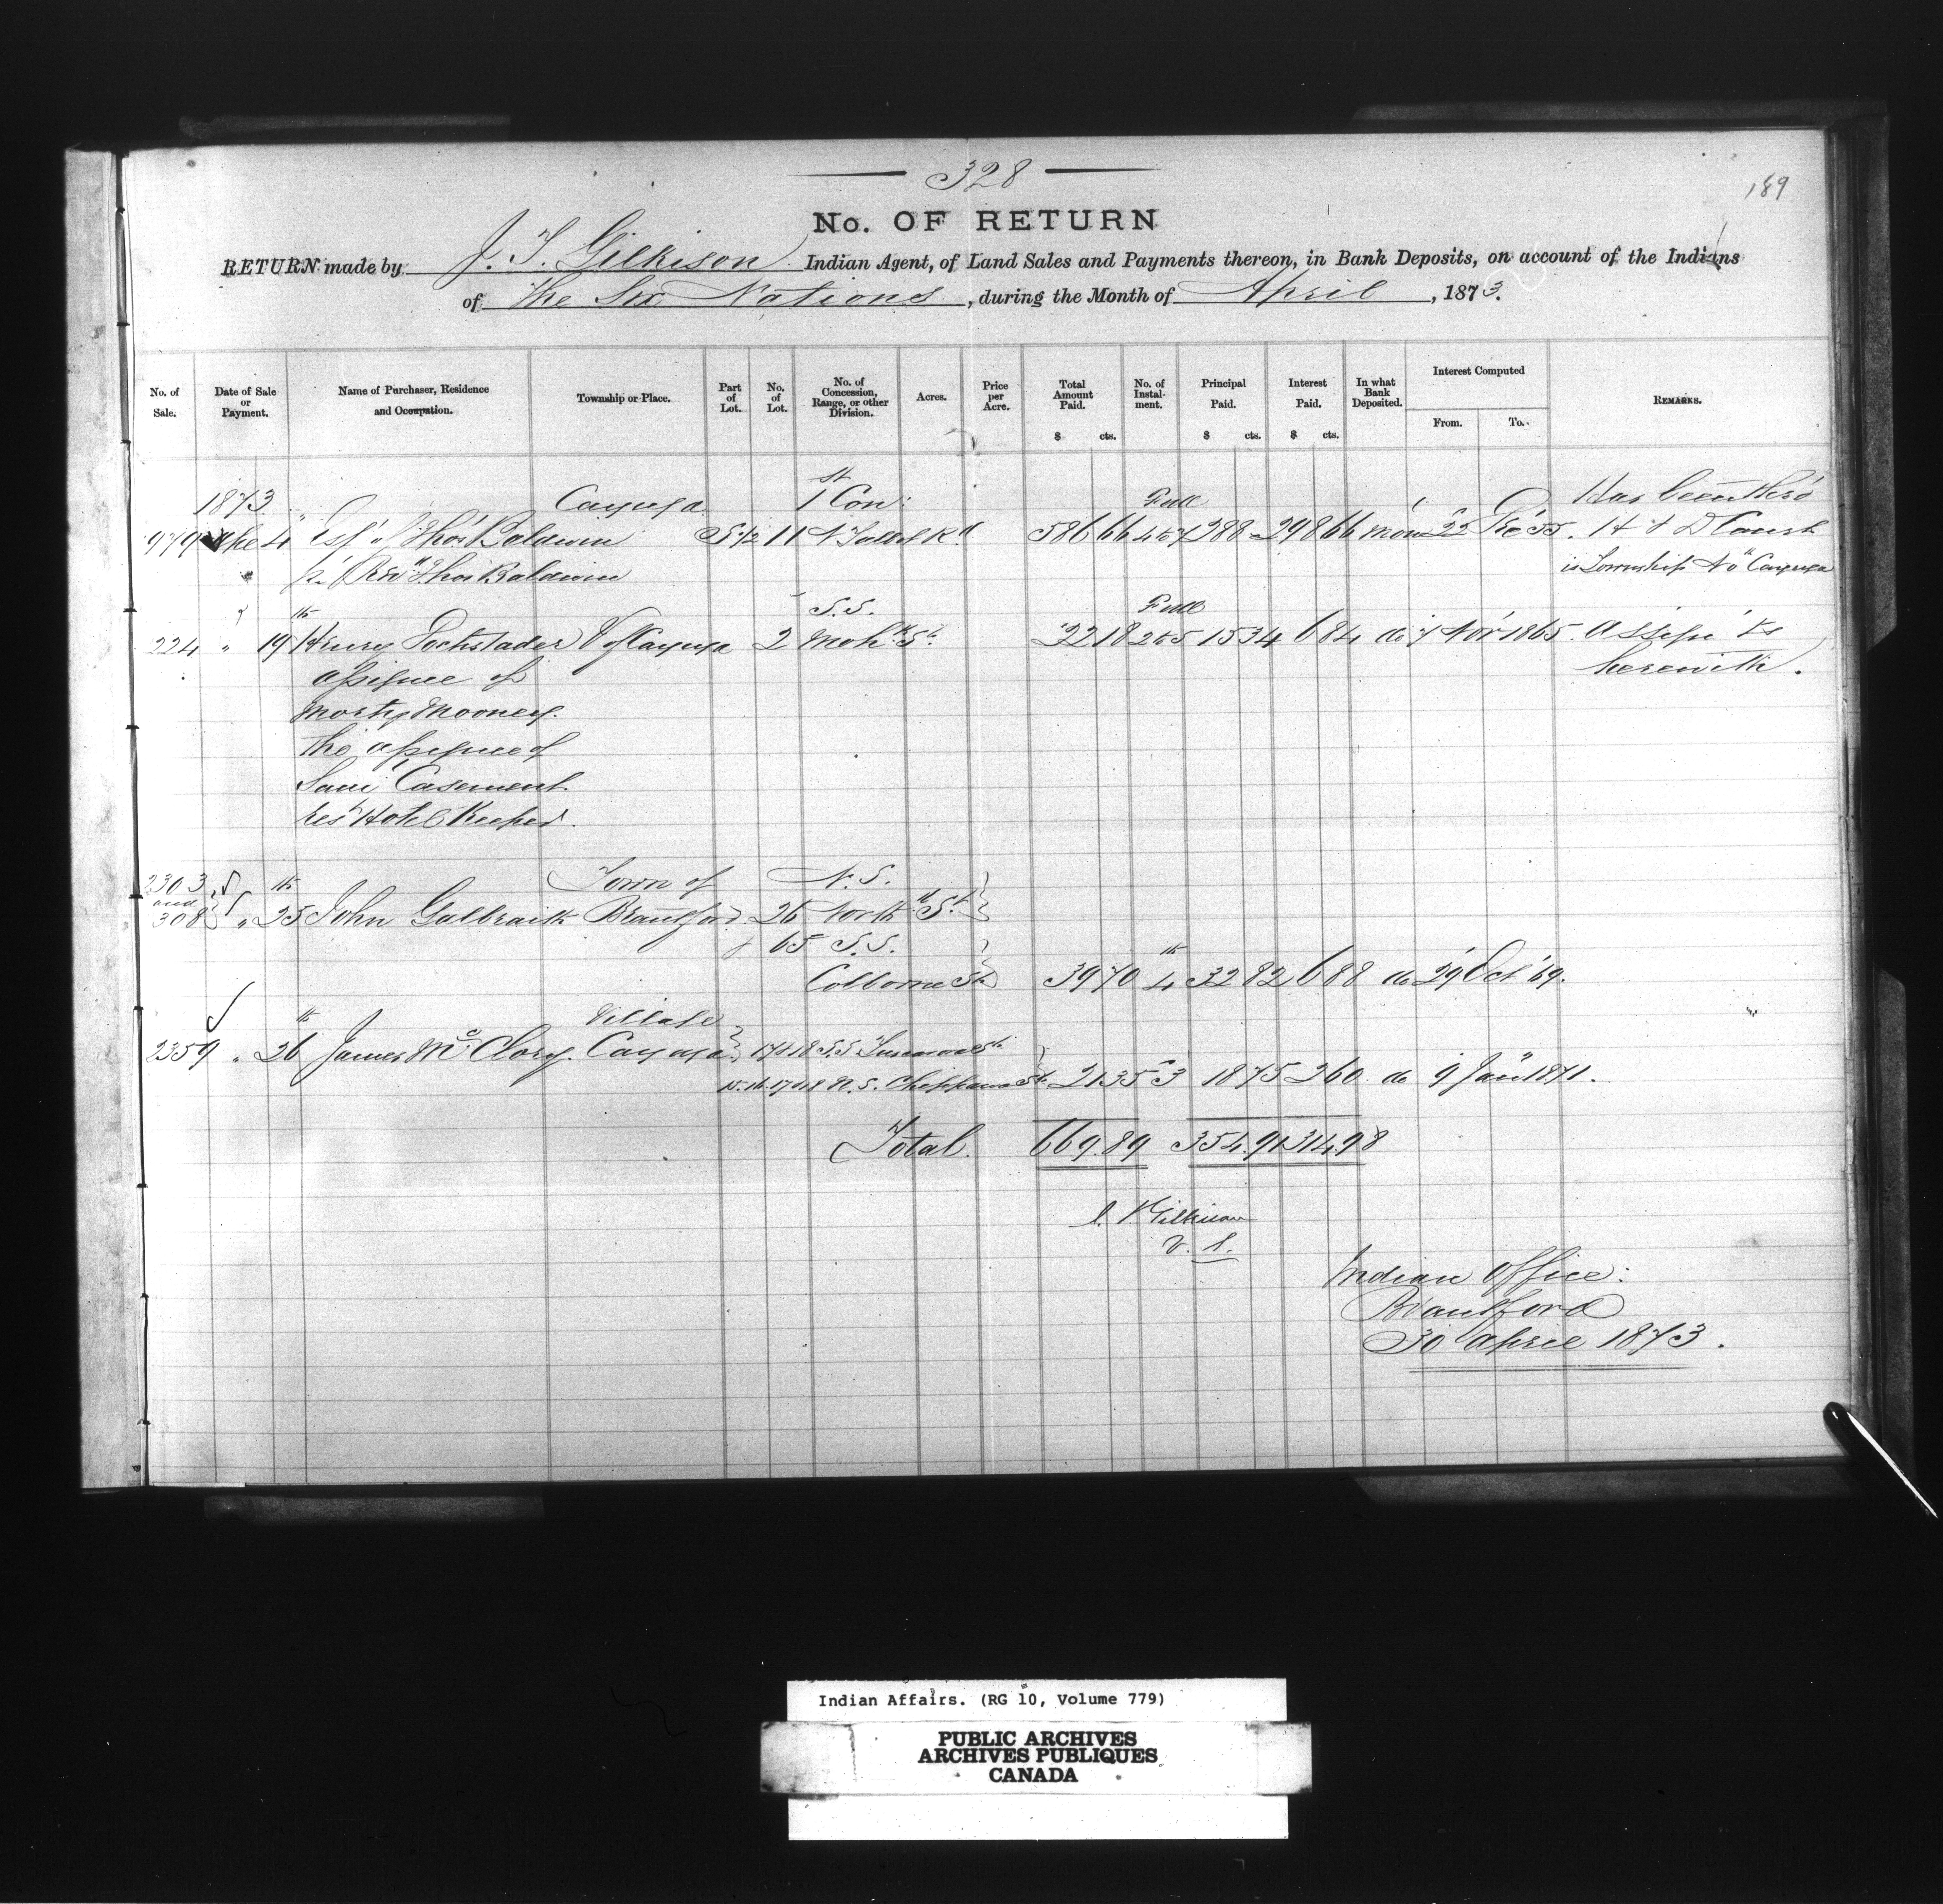 328
189
No. OF RETURN
RETURN made by J. T. Gilkison Indian Agent, of Land Sales and Payments thereon, in Bank Deposits, on account of the Indians
of the Six Nations, during the Month of April, 1873.
No. of Sale. Date of Sale or Payment. Name of Purchaser, Residence and Occupation. Township or Place. Part of Lot. No. of Lot. No. of Concession, Range, or other Division. Acres. Price per Acre. Total Amount Paid. $ cts. No. of Instalment. Principal Paid. $ cts. Interest Paid. $ cts. In what Bank Deposited. Interest Computed From. To. REMARKS.
1873 Cayuga 1st Con: Full Has been
979 4 Thos Baldwin S 1/2 11 N Talbot Rd 586 66 4 to 7 288 - 298 66 Mon 22 55. H &
Thos Baldwin is Township No Cayuga
S.S. Full
224 " 19th Henry Dochstader V of Cayuga 2 Moh St. 22 18 2 to 5 15 34 6 84 do 7 Nov 1865. Assign ts
assignee of herewith.
Mooney.
the assignee of
Casement
Hotel Keeper.
2303 Town of N.S.
and 308 " 25th John Galbraith Brantford 26 North St.
& 65 S.S.
Colborne St 39 70 4th 32 82 6 88 do 29 Oct '69.
Village
2359 " 26th James McClory. Cayuga 17 & 18 S.S. Tuscarora St
15. 16. 17 & 18 N. S. Chippawa St. 21 35 3 18 75 2 60 do 9 Jany 1871.
Total. 669.89 354.91 314.98
J. T. Gilkison
V. S.
Indian Office:
Brantford
30 April 1873.
Indian Affairs. (RG 10, Volume 779)
PUBLIC ARCHIVES
ARCHIVES PUBLIQUES
CANADA